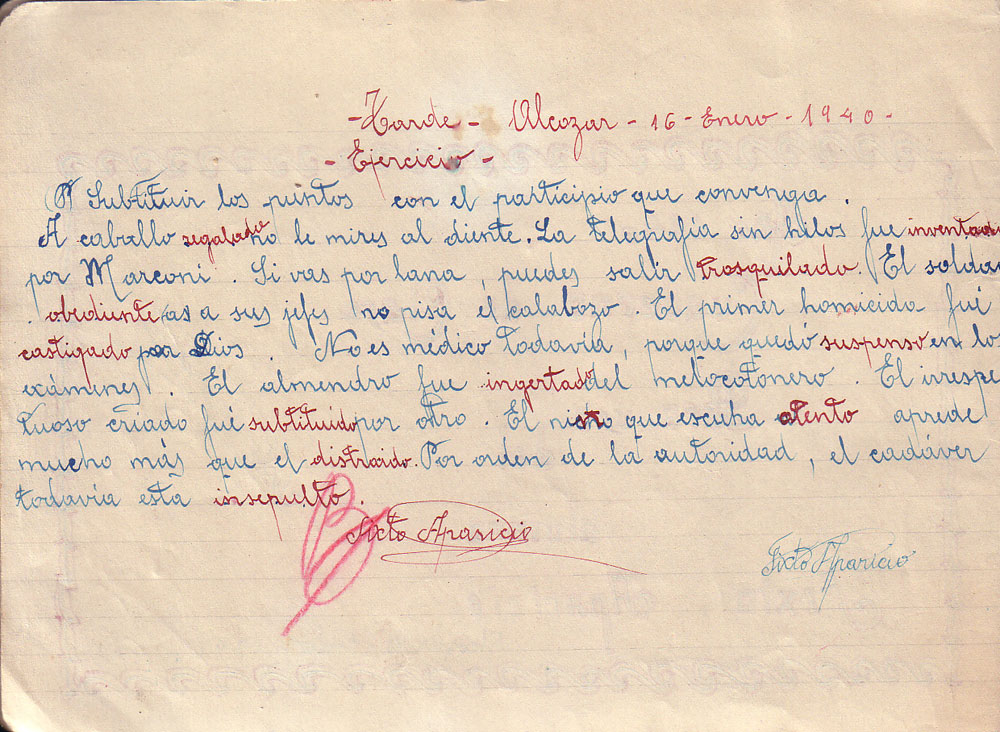 - Tarde - Alcozar - 16 - Enero - 1940 -
- Ejercicio -
Subtituir los puntos con el participio que convenga.
A caballo regalado no le mires al diente. La telegrafía sin hilos fue inventado
por Marconi. Si vas por lana, puedes salir trosquilado. El soldad
obediente a sus jefes no pisa el calabozo. El primer homicida fué
castigado por Dios. No es médico todavía, porque quedó suspenso en los
exámenes. El almendro fue ingertado del melocotonero. El irrespe
tuoso criado fué subtituido por otro. El niño que escucha atento aprede
mucho más que el distraido. Por orden de la autoridad, el cadáver
todavía está insepulto.
Sixto Aparicio
Sixto Aparicio